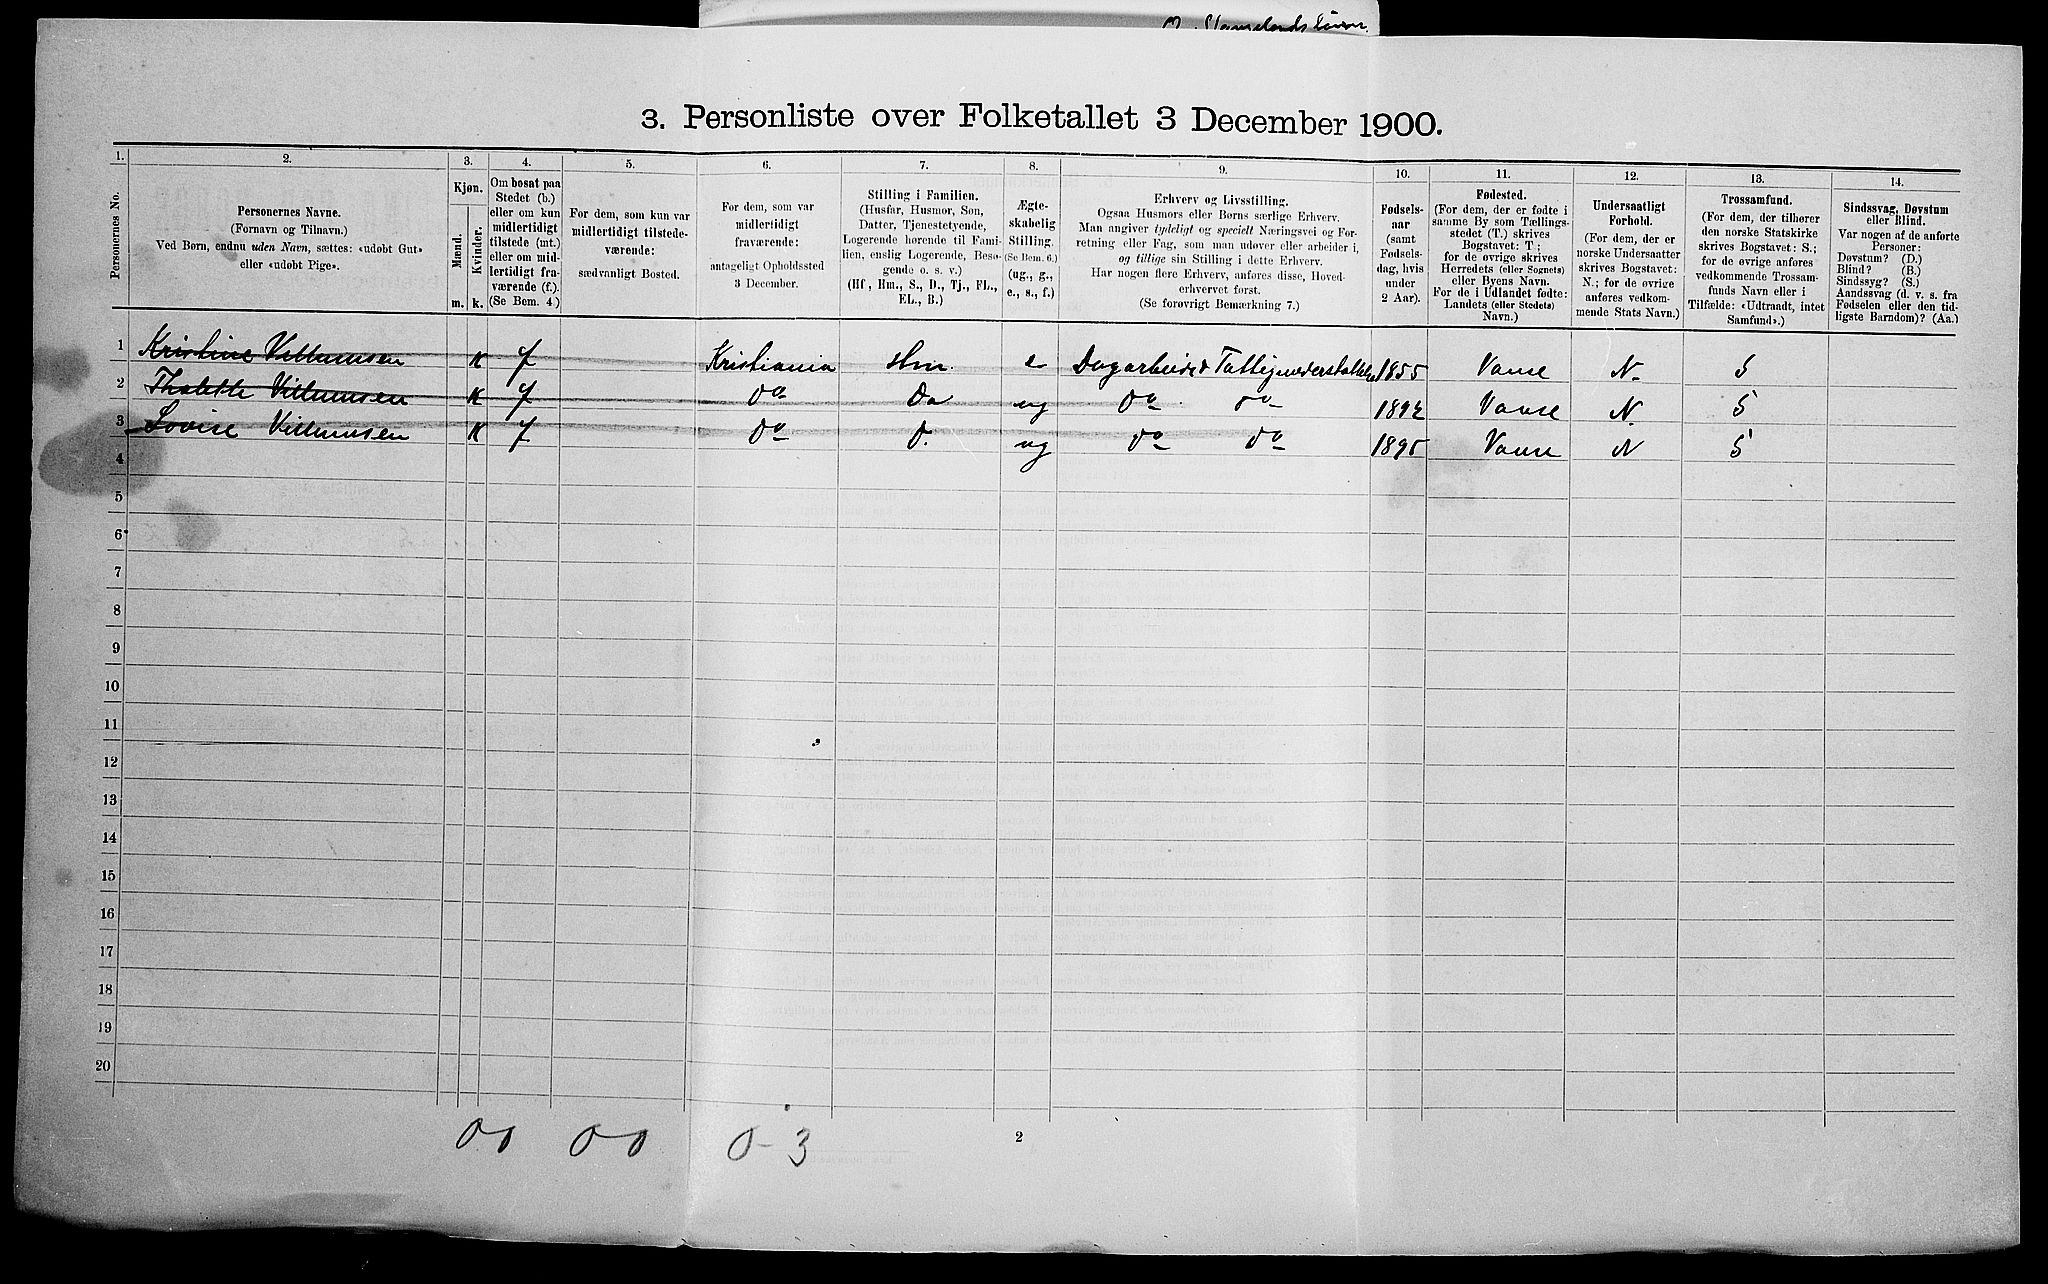 3. Personliste over Folketallet 3 December 1900.
1. 2. 3. 4. 5. 6. 7. 8. 9. 10. 11. 12. 13. 14.
Personernes No.
Personernes Navne.
(Fornavn og Tilnavn.)
Ved Børn, endnu uden Navn, sættes: «udøbt Gut»
eller «udøbt Pige».
Kjøn.
Mænd.
Kvinder.
m. k.
Om bosat paa
Stedet (b.)
eller om kun
midlertidigt
tilstede (mt.)
eller om mid-
lertidigt fra-
værende (f.).
(Se Bem. 4.)
For dem, som kun var
midlertidigt tilstede-
værende:
sædvanligt Bosted.
For dem, som var
midlertidigt
fraværende:
antageligt Opholdssted
3 December.
Stilling i Familien.
(Husfar, Husmor, Søn,
Datter, Tjenestetyende,
Logerende hørende til Fami-
lien, enslig Logerende, Besø-
gende o. s. v.)
(Hf, Hm., S., D., Tj., FL.,
EL., B.)
Ægte-
skabelig
Stilling.
(Se Bem. 6.)
(ug., g.,
e., s., f.)
Erhverv og Livsstilling.
Ogsaa Husmors eller Børns særlige Erhverv.
Man angiver tydeligt og specielt Næringsvei og For-
retning eller Fag, som man udøver eller arbeider i,
og tillige sin Stilling i dette Erhverv.
Har nogen flere Erhverv, anføres disse, Hoved-
erhvervet først.
(Se forøvrigt Bemærkning 7.)
Fødsels-
aar
(samt
Fødsels-
dag, hvis
under
2 Aar).
Fødested.
(For dem, der er fødte i
samme By som Tællings-
stedet (T.) skrives
Bogstavet: T.;
for de øvrige skrives
Herredets (eller Sognets)
eller Byens Navn.
For de i Udlandet fødte:
Landets (eller Stedets)
Navn.)
Undersaatligt
Forhold.
(For dem, der er
norske Undersaatter
skrives Bogstavet:
N.; for de øvrige
anføres vedkom-
mende Stats Navn.)
Trossamfund.
(For dem, der tilhører
den norske Statskirke
skrives Bogstavet: S.;
for de øvrige anføres
vedkommende Trossam-
funds Navn eller i
Tilfælde: «Udtraadt, intet
Samfund».)
Sindssvag, Døvstum
eller Blind.
Var nogen af de anførte
Personer:
Døvstum? (D.)
Blind? (B.)
Sindssyg? (S.)
Aandssvag (d. v. s. fra
Fødselen eller den tid-
ligste Barndom)? (Aa.)
1 Kristine Villumsen K f Kristiania Hm. e Dagarbeide Fattigunderstøttelse 1855 Vanse N. S
2 Thalette Villumsen K f do Da ug do do 1892 Vanse N. S
3 Lovise Villumsen K f do D. ug do do 1895 Vanse N S
4
5
6
7
8
9
10
11
12
13
14
15
16
17
18
19
20
00 00 0-3
2